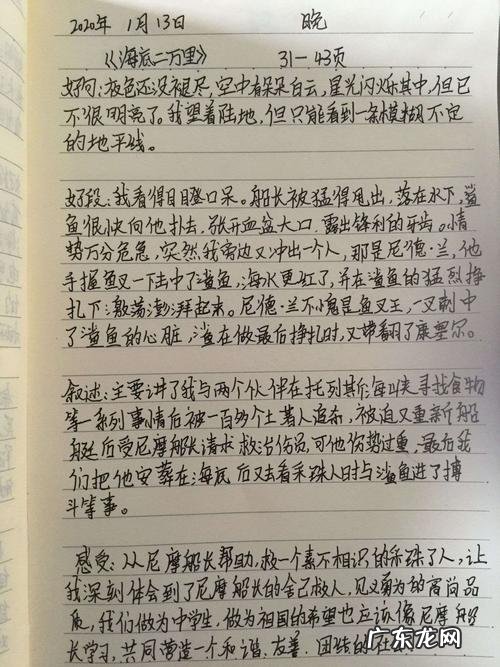 2020年 1月13日 晚
《海底二万里》 31—43页
好句:夜色还没褪尽,空中有朵朵白云,星光闪烁其中,但已
不很明亮了。我望着陆地,但只能看到一条模糊不定
的地平线。
好段:我看得目瞪口呆。船长被猛得甩出,落在水下,鲨
鱼很快向他扑去,张开血盆大口,露出锋利的牙齿。情
势万分危急,突然我旁边又冲出一个人,那是尼德·兰,他
手握鱼叉一下击中了鲨鱼,海水更红了,并在鲨鱼的猛烈挣
扎下激荡澎湃起来。尼德·兰不愧是鱼叉王,一叉刺中
了鲨鱼的心脏,鲨在做最后挣扎时,又带翻了康塞尔。
叙述:主要讲了我与两个伙伴在托列斯海峡寻找食物
等一系列事情后被一百多个土著人追杀,被迫又重新船
艇后受尼摩船长请求救治伤员,可他伤势过重,最后我
们把他安葬在海底后又去看采珠人时与鲨鱼进了搏
斗等事。
感受:从尼摩船长帮助,救一个素不相识的采珠了人,让
我深刻体会到了尼摩船长的舍己救人,见义勇为的高尚品
质,我们做为中学生,做为祖国的希望也应该像尼摩船
长学习,共同营造一个和谐、友善、团结的社
广东龙网